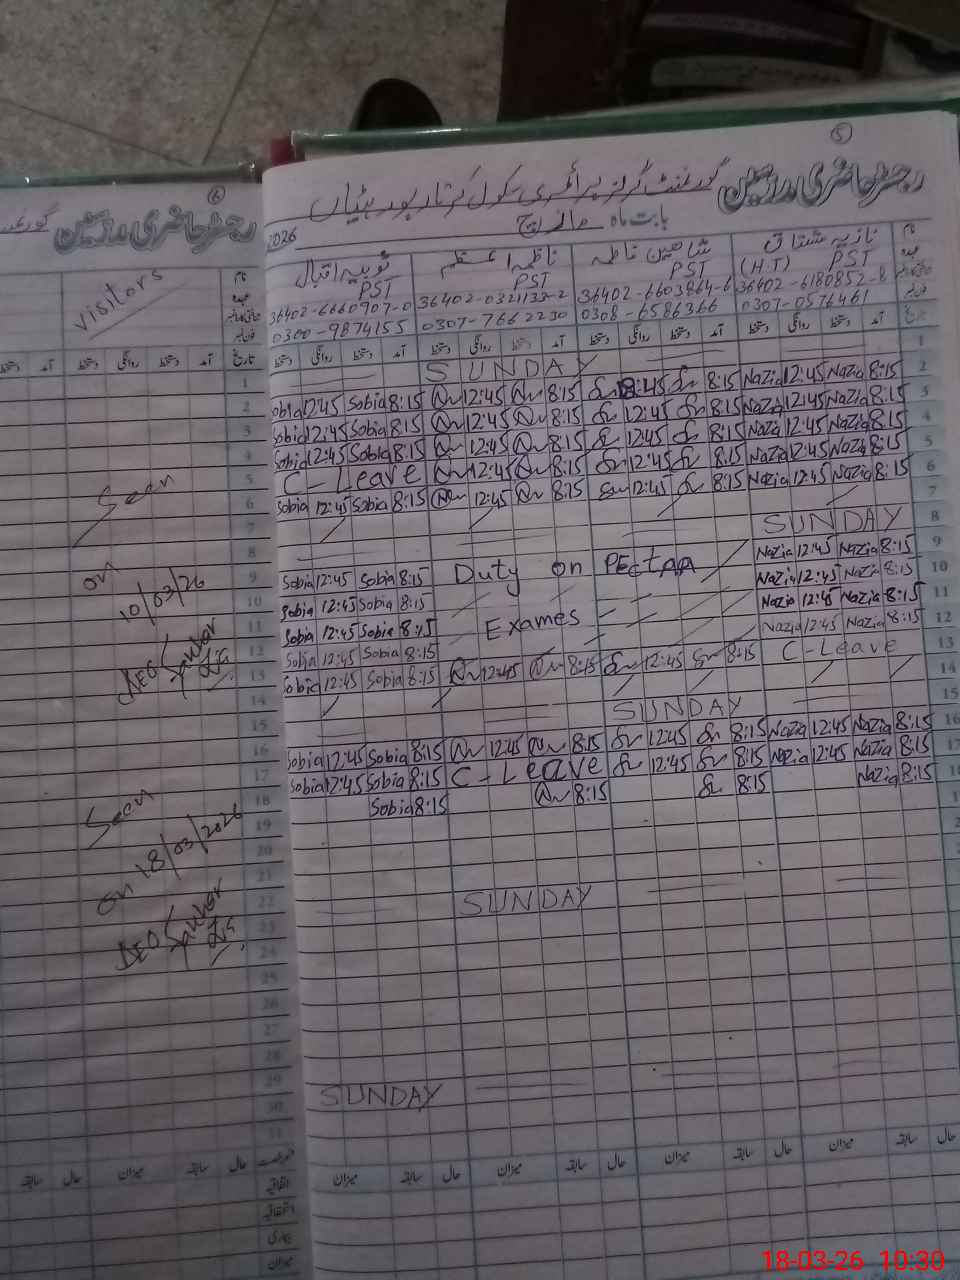 رجسٹر حاضری مدرسین
visitors
Seen
on
10/03/26
AEO
Seen
on 18/03/2026
AEO
5
رجسٹر حاضری مدرسین گورنمنٹ گرلز پرائمری سکول کرتارپور بھٹیاں
بابت ماہ مارچ 2026
نازیہ مشتاق شاھین فاطمہ ناظمہ اعظم ثوبیہ اقبال
(H.T) PST PST PST
36402-6180852-8 36402-6603464-6 36402-0321133-2 36402-6660907-0
0307-0576461 0308-6586366 0307-7662230 0300-9874155
1 SUNDAY
2 Sobia 12:45 Sobia 8:15 12:45 8:15 12:45 8:15 Nazia 12:45 Nazia 8:15
3 Sobia 12:45 Sobia 8:15 12:45 8:15 12:45 8:15 Nazia 12:45 Nazia 8:15
4 Sobia 12:45 Sobia 8:15 12:45 8:15 12:45 8:15 Nazia 12:45 Nazia 8:15
5 C-Leave 12:45 8:15 12:45 8:15 Nazia 12:45 Nazia 8:15
6 Sobia 12:45 Sobia 8:15 12:45 8:15 12:45 8:15 Nazia 12:45 Nazia 8:15
7
8 SUNDAY
9 Sobia 12:45 Sobia 8:15 Duty on PECTAA Nazia 12:45 Nazia 8:15
10 Sobia 12:45 Sobia 8:15 Nazia 12:45 Nazia 8:15
11 Sobia 12:45 Sobia 8:15 Exames Nazia 12:45 Nazia 8:15
12 Sobia 12:45 Sobia 8:15 Nazia 12:45 Nazia 8:15
13 Sobia 12:45 Sobia 8:15 12:45 8:15 12:45 8:15 C-Leave
14
15 SUNDAY
16 Sobia 12:45 Sobia 8:15 12:45 8:15 12:45 8:15 Nazia 12:45 Nazia 8:15
17 Sobia 12:45 Sobia 8:15 C-Leave 12:45 8:15 Nazia 12:45 Nazia 8:15
18 Sobia 8:15 8:15 8:15 Nazia 8:15
19
20
21
22 SUNDAY
23
24
25
26
27
28
29 SUNDAY
30
31
میزان سابقہ حال میزان سابقہ حال میزان سابقہ حال میزان سابقہ حال
18-03-26 10:30